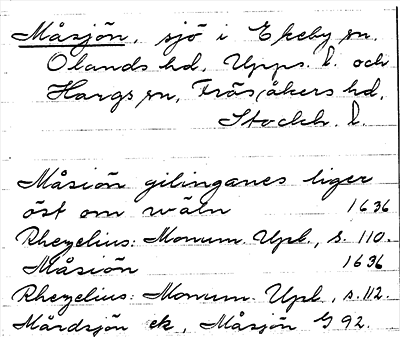 Måsjön, sjö i Ekeby sn,
Olands hd, Upps. l. och
Hargs sn, Frösåkers hd,
Stockh. l.
Måsiön gilinganes liger
öst om wäln 1636
Rhezelius: Monum. Upl., s. 110.
Måsiön 1636
Rhezelius: Monum. Upl., s. 112.
Mårdsjön ek, Måsjön G 92.